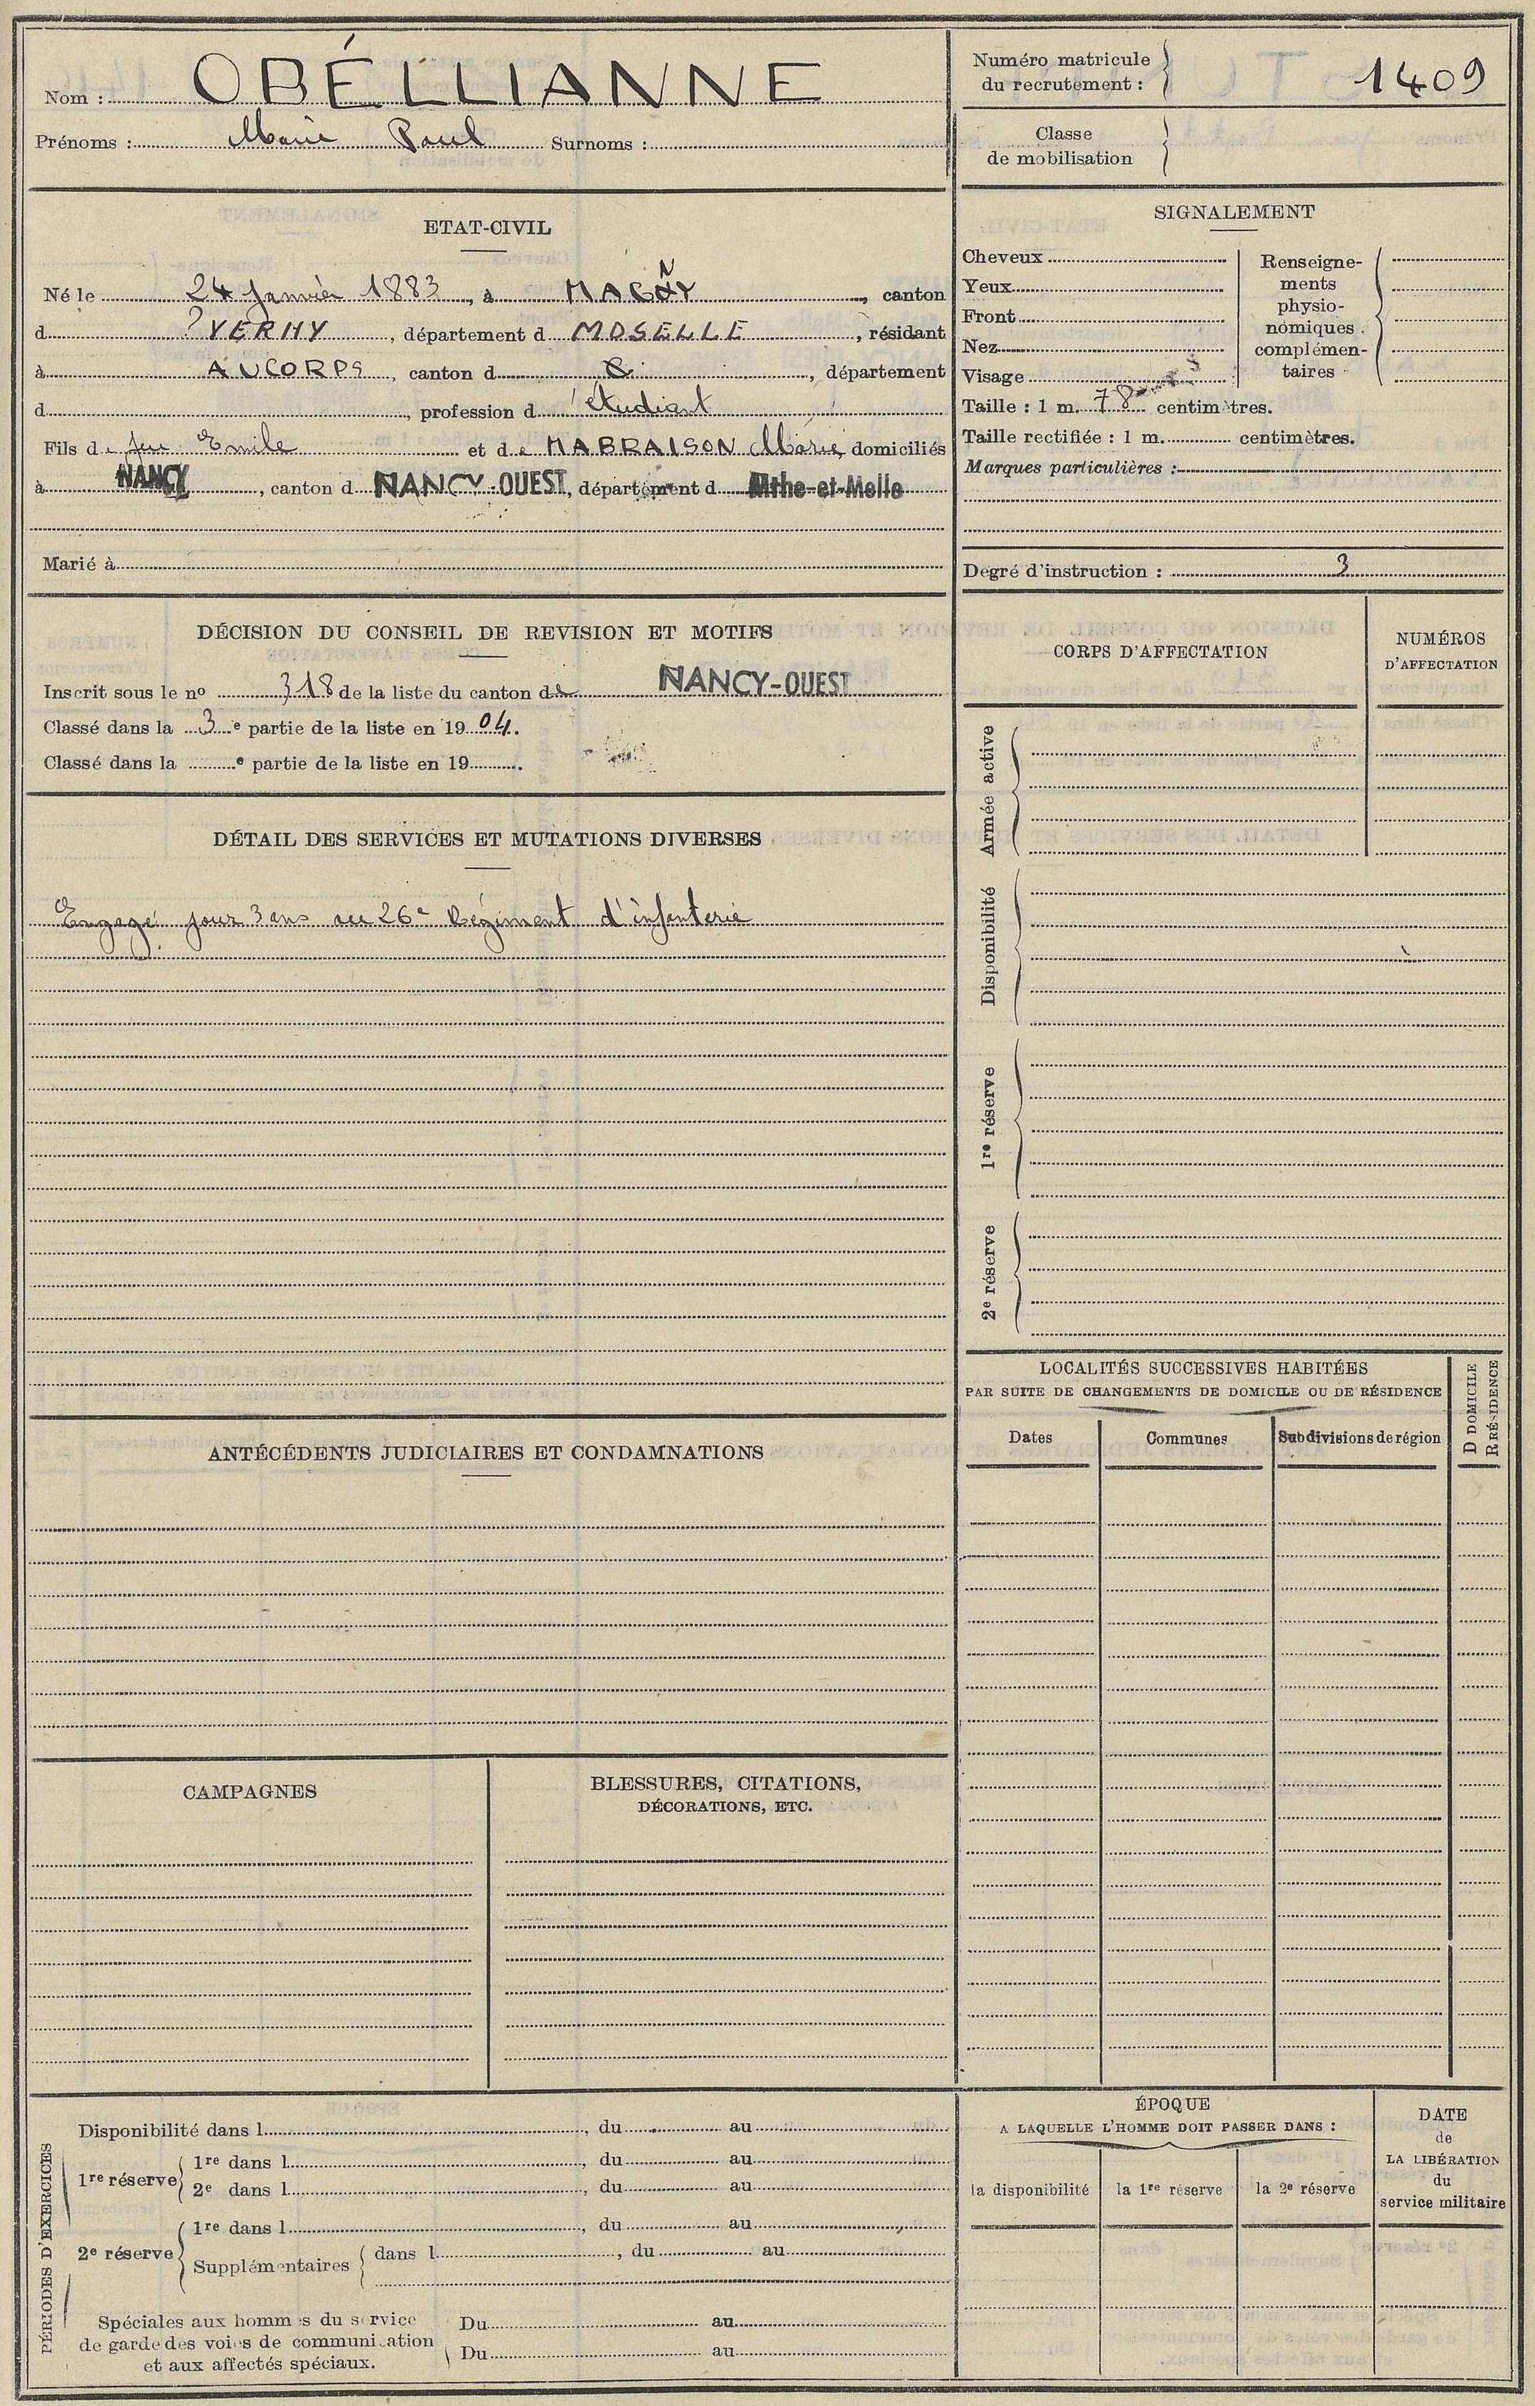 Nom : OBÉLLIANNE
Prénoms : Marie Paul Surnoms :
ETAT-CIVIL
Né le 24 Janvier 1883, à MAGNY, canton
d ? VERNY, département d MOSELLE, résidant
à AU CORPS, canton d, département
d, profession d étudiant
Fils de feu Emile et de MABRAISON Marie domiciliés
à NANCY, canton d NANCY-OUEST, département d Mthe-et-Melle
Marié à
DÉCISION DU CONSEIL DE REVISION ET MOTIFS
Inscrit sous le nº 318 de la liste du canton de NANCY-OUEST
Classé dans la 3e partie de la liste en 1904.
Classé dans la e partie de la liste en 19 .
DÉTAIL DES SERVICES ET MUTATIONS DIVERSES
Engagé pour 3 ans au 26e Régiment d'infanterie
ANTÉCÉDENTS JUDICIAIRES ET CONDAMNATIONS
CAMPAGNES
BLESSURES, CITATIONS,
DÉCORATIONS, ETC.
PÉRIODES D'EXERCICES
Disponibilité dans l, du au
1re réserve
1re dans l, du au
2e dans l, du au
2e réserve
1re dans l, du au
Supplémentaires dans l, du au
Spéciales aux hommes du service
de garde des voies de communication
et aux affectés spéciaux.
Du au
Du au
Numéro matricule
du recrutement : 1409
Classe
de mobilisation
SIGNALEMENT
Cheveux
Yeux
Front
Nez
Visage
Renseigne-
ments
physio-
nomiques
complémen-
taires
Taille : 1 m. 78 centimètres.
Taille rectifiée : 1 m. centimètres.
Marques particulières :
Degré d'instruction : 3
CORPS D'AFFECTATION
NUMÉROS
D'AFFECTATION
Armée active
Disponibilité
1re réserve
2e réserve
LOCALITÉS SUCCESSIVES HABITÉES
PAR SUITE DE CHANGEMENTS DE DOMICILE OU DE RÉSIDENCE
D DOMICILE
R RÉSIDENCE
Dates
Communes
Subdivisions de région
ÉPOQUE
A LAQUELLE L'HOMME DOIT PASSER DANS :
la disponibilité
la 1re réserve
la 2e réserve
DATE
de
LA LIBÉRATION
du
service militaire